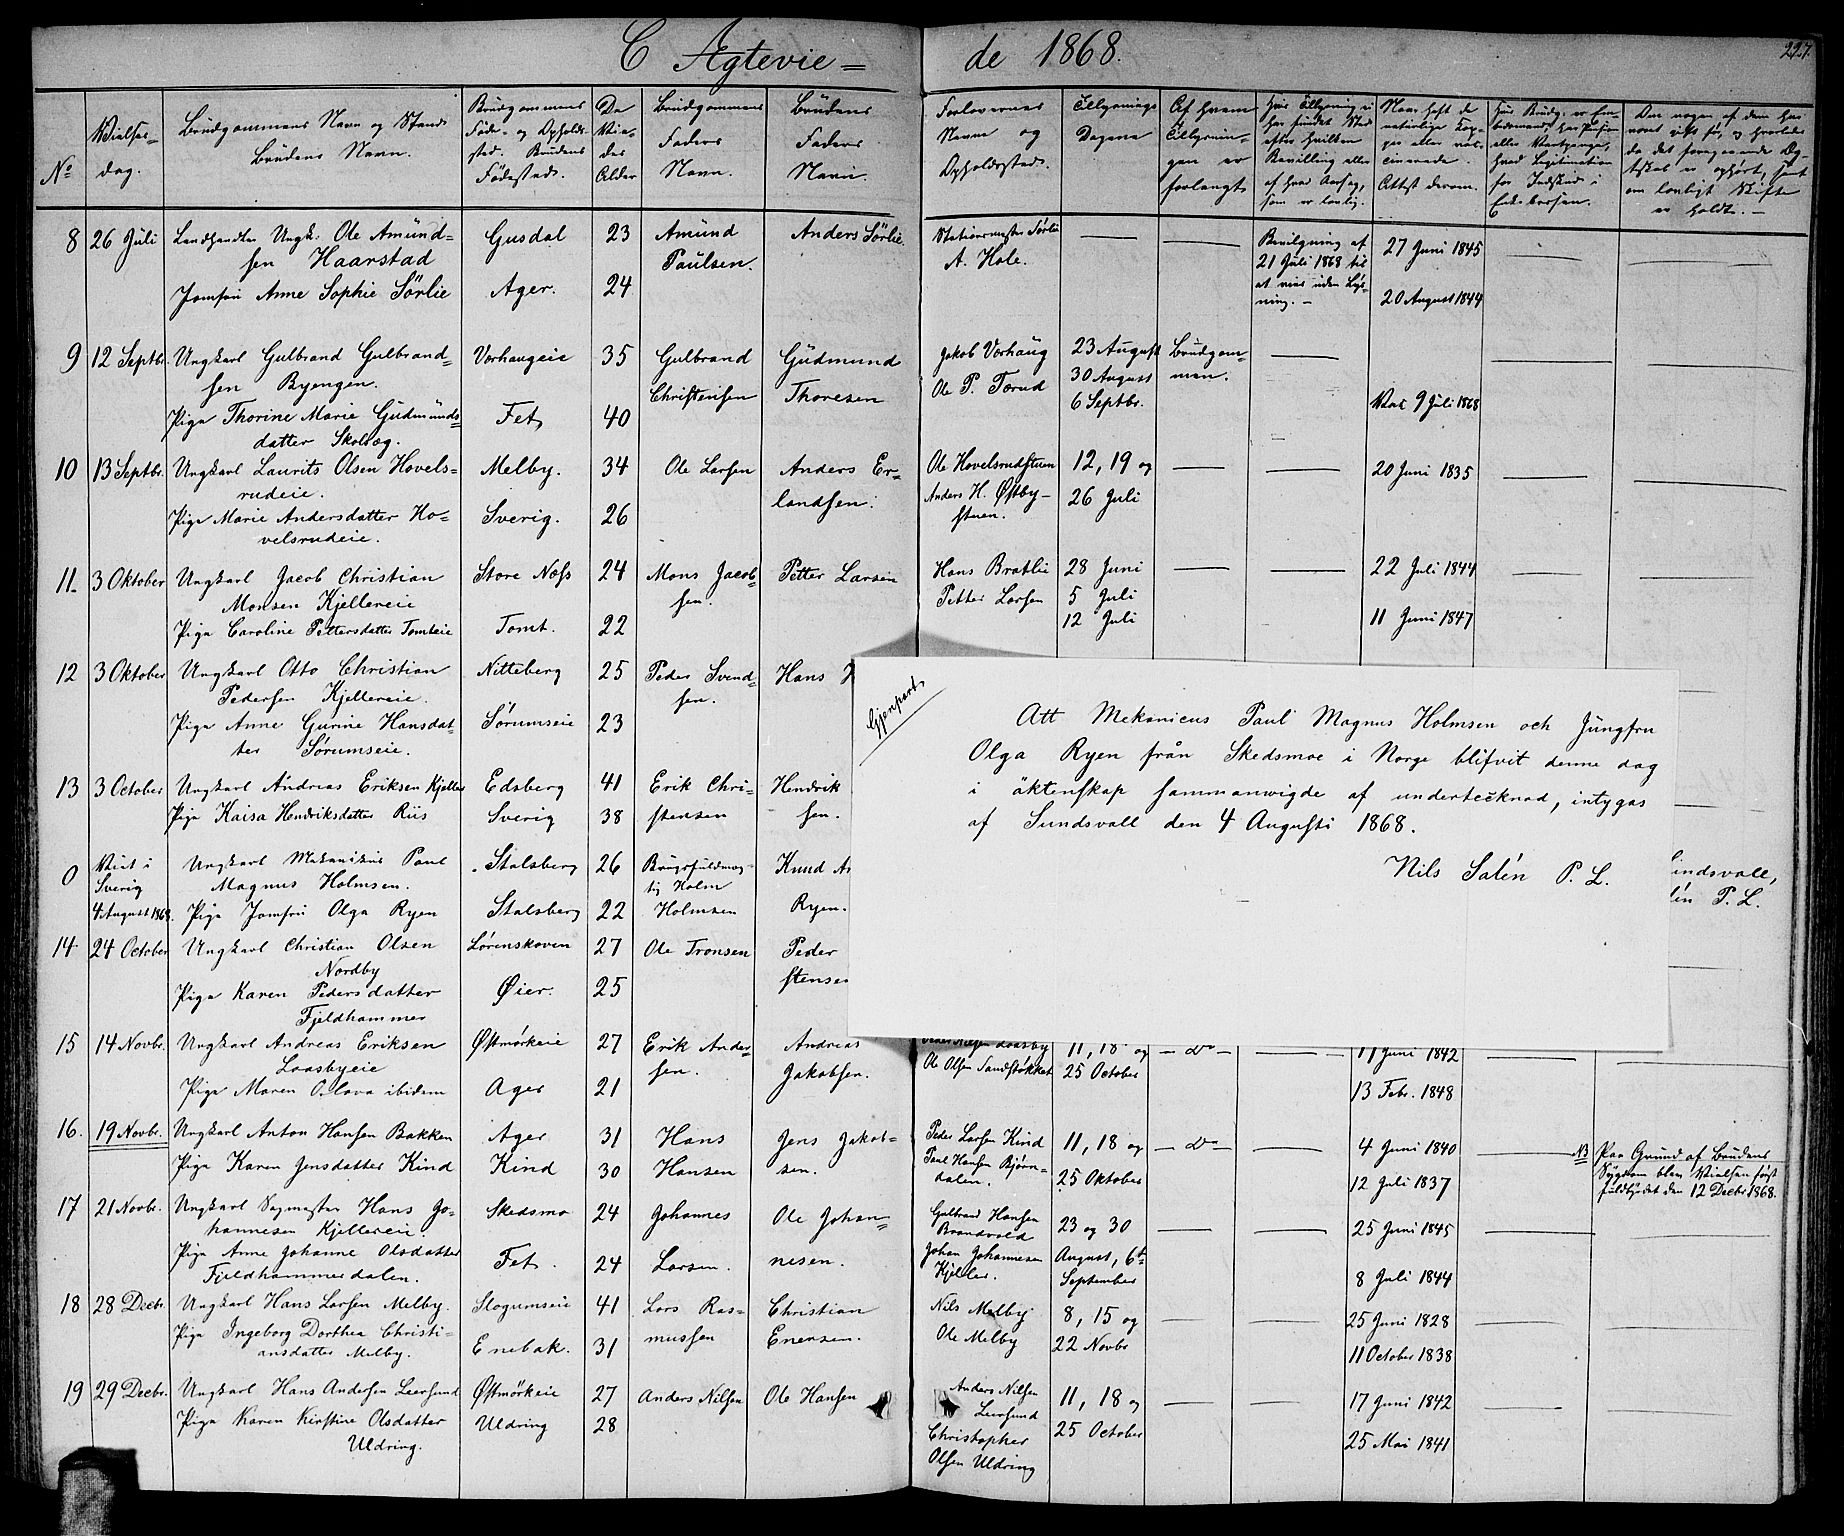 C Ægtevie= de 1868.
227.
No
Vielses-
dag.
Brudgommens Navn og Stand
Brudens Navn.
Brudgommens
Føde- og Opholds-
sted. Brudens
Fødested.
De
Vie-
des
Alder
Brudgommens
Faders
Navn.
Brudens
Faders
Navn.
Forlovernes
Navn og
Opholdssted.
Tillysnings
Dagene
Af hvem
Tillysnin-
gen er
forlangt
8 26 Juli Landhandler Ungk. Ole Amund= Gusdal 23 Amund Anders Sørlie
sen Haarstad Paulsen.
Jomfru Anne Sophie Sörlie Ager. 24
Stationsmester Sørlie
A. Hole.
Bevilgning af
21 Juli 1868 til
at vies uden Lys-
ning. -
27 Juni 1845
20 August 1844
9 12 Septbr. Ungkarl Gulbrand Gulbrand= Vorhaugeie 35 Gulbrand Gudmund
sen Byengen. Christensen Thoresen
Pige Thorine Marie Gudmunds= Fet 40
datter Skolbog.
Jakob Vorhaug 23 August Brudgom-
Ole P. Torud 30 August men.
6 Septbr.
Vac 9 Juli 1868
10 13 Septbr. Ungkarl Laurits Olsen Hovels= Melby. 34 Ole Larsen Anders Er-
rudeie. landsen.
Pige Marie Andersdatter Ho= Sverig. 26
velsrudeie.
Ole Hovelsrudstuen 12, 19 og
Anders H. Østby- 26 Juli
stuen.
20 Juni 1835
11. 3 Oktober Ungkarl Jacob Christian Store Næss 24 Mons Jacob= Petter Larsen
Monsen Kjellereie sen.
Pige Caroline Pettersdatter Tomteie Tomt. 22
Hans Bratlie 28 Juni
Petter Larsen 5 Juli
12 Juli
22 Juli 1844
11 Juni 1847
12 3 Oktober Ungkarl Otto Christian Nitteberg 25 Peder Svend= Hans
Pedersen Kjellereie. sen.
Pige Anne Gurine Hansdat= Sørumseie 23
ter Sørumseie.
13 3 October Ungkarl Andreas Eriksen Kjeller Edsberg 41 Erik Chri- Hendrik
Pige Kaisa Hendriksdatter Riis Sverig 38 stensen sen.
0 Viet i Ungkarl Mekanikus Paul Stalsberg 26 Brugsfuldmæg- Knud
Sverig Magnus Holmsen. tig Holm
4 August 1868. Pige Jomfru Olga Ryen Stalsberg 22 Holmsen Ryen.
14 24 October Ungkarl Christian Olsen Lørenskoven 27 Ole Tronsen Peder
Nordby
Pige Karen Pedersdatter Øier. 25 stensen
Fjeldhammer
Gjenpart
Att Mekanicus Paul Magnus Holmsen och Jungfru
Olga Ryen från Skedsmoe i Norge blifvit denne dag
i äktenskap sammanwigde af undertecknad, intygas
af Sundsvall den 4 Augusti 1868.
Nils Salén P. L.
indsvall,
én P. L.
15 14 Novbr. Ungkarl Andreas Eriksen Østmørkeie 27 Erik Ander- Andreas
Laasbyeie sen. Jakobsen.
Pige Maren O. Lava ibidem Ager 21
11, 18 og - do -
Ole Olsen Sandstøkket 25 October
17 Juni 1842
13 Febr. 1848
16. 19 Novbr. Ungkarl Anton Hansen Bakken Ager 31 Hans Jens Jakob-
Pige Karen Jensdatter Kind Kind 30 Hansen sen.
Peder Larsen Kind 11, 18 og - do -
Paul Hansen Bjørn-
dalen. 25 Oktober
4 Juni 1840
12 Juli 1837
NB Paa Grund af Brudens
Sygdom blev Vielsen først
fuldbyrdet den 12 Decbr 1868.
17 21 Novbr. Ungkarl Sagmester Hans Jo- Skedsmo 24 Johannes Ole Johan=
hannesen Kjellereie.
Pige Anne Johanne Olsdatter Fet. 24 Larsen. nesen.
Fjeldhammerdalen.
Gulbrand Hansen 23 og 30
Brandvold
Johan Johannesen August, 6te
Kjeller. September
25 Juni 1845
8 Juli 1844
18 28 Decbr. Ungkarl Hans Larsen Melby. Slogumseie 41 Lars Ras- Christian
Pige Ingeborg Dorthea Christi- mussen Enersen.
ansdatter Melby. Enebak. 31
Nils Melby 8, 15 og
Ole Melby 22 Novbr
25 Juni 1828
11 October 1838
19 29 Decbr. Ungkarl Hans Andersen Leersund Østmørkeie 27 Anders Nilsen Ole Hansen
Pige Karen Kirstine Olsdatter Uldring 28
Uldring.
Anders Nilsen 11, 18 og
Leersund
Christopher 25 October
Olsen Uldring
17 Juni 1842
25 Mai 1841